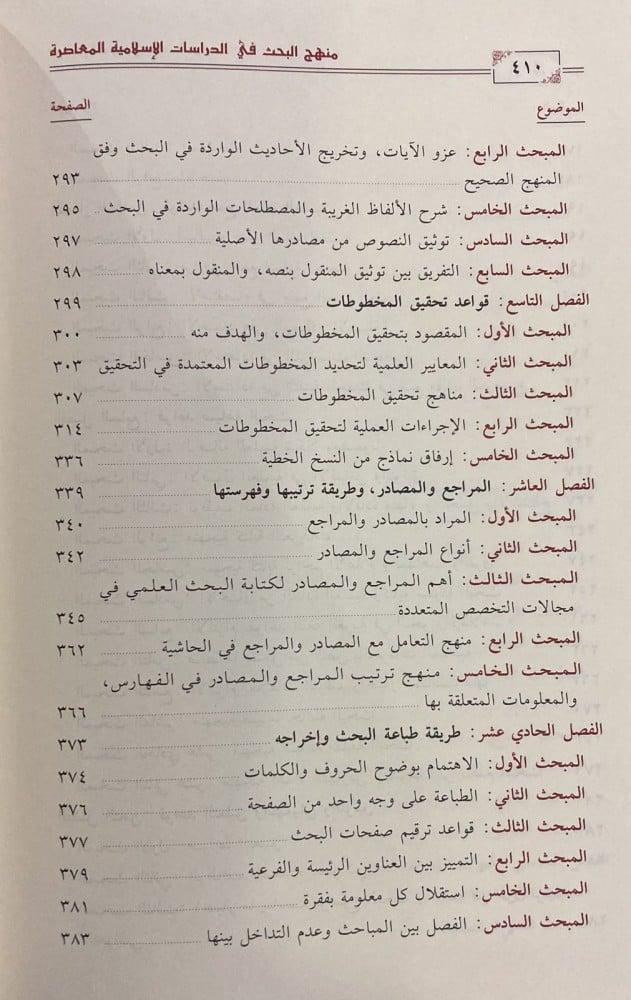 ٤١٠
منهج البحث في الدراسات الإسلامية المعاصرة
الموضوع الصفحة
المبحث الرابع: عزو الآيات، وتخريج الأحاديث الواردة في البحث وفق
المنهج الصحيح ٢٩٣
المبحث الخامس: شرح الألفاظ الغريبة والمصطلحات الواردة في البحث ٢٩٥
المبحث السادس: توثيق النصوص من مصادرها الأصلية ٢٩٧
المبحث السابع: التفريق بين توثيق المنقول بنصه، والمنقول بمعناه ٢٩٨
الفصل التاسع: قواعد تحقيق المخطوطات ٢٩٩
المبحث الأول: المقصود بتحقيق المخطوطات، والهدف منه ٣٠٠
المبحث الثاني: المعايير العلمية لتحديد المخطوطات المعتمدة في التحقيق ٣٠٣
المبحث الثالث: مناهج تحقيق المخطوطات ٣٠٧
المبحث الرابع: الإجراءات العملية لتحقيق المخطوطات ٣١٤
المبحث الخامس: إرفاق نماذج من النسخ الخطية ٣٣٦
الفصل العاشر: المراجع والمصادر، وطريقة ترتيبها وفهرستها ٣٣٩
المبحث الأول: المراد بالمصادر والمراجع ٣٤٠
المبحث الثاني: أنواع المراجع والمصادر ٣٤٢
المبحث الثالث: أهم المراجع والمصادر لكتابة البحث العلمي في
مجالات التخصص المتعددة ٣٤٥
المبحث الرابع: منهج التعامل مع المصادر والمراجع في الحاشية ٣٦٢
المبحث الخامس: منهج ترتيب المراجع والمصادر في الفهارس،
والمعلومات المتعلقة بها ٣٦٦
الفصل الحادي عشر: طريقة طباعة البحث وإخراجه ٣٧٣
المبحث الأول: الاهتمام بوضوح الحروف والكلمات ٣٧٤
المبحث الثاني: الطباعة على وجه واحد من الصفحة ٣٧٦
المبحث الثالث: قواعد ترقيم صفحات البحث ٣٧٧
المبحث الرابع: التمييز بين العناوين الرئيسة والفرعية ٣٧٩
المبحث الخامس: استقلال كل معلومة بفقرة ٣٨١
المبحث السادس: الفصل بين المباحث وعدم التداخل بينها ٣٨٣